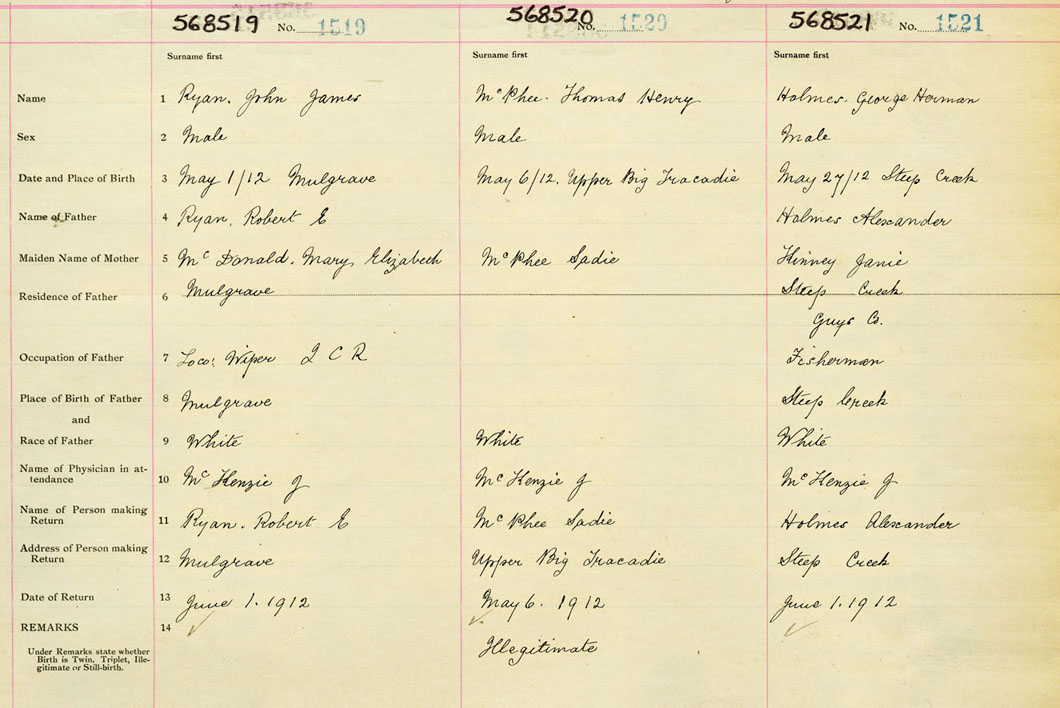 568519 No. 1519 568520 No. 1520 568521 No. 1521
Surname first Surname first Surname first
Name 1 Ryan. John James Mc Phee. Thomas Henry Holmes. George Herman
Sex 2 Male Male Male
Date and Place of Birth 3 May 1/12 Mulgrave May 6/12. Upper Big Tracadie May 27/12 Steep Creek
Name of Father 4 Ryan. Robert E Holmes Alexander
Maiden Name of Mother 5 Mc Donald. Mary Elizabeth Mc Phee Sadie Kinney Janie
Residence of Father 6 Mulgrave Steep Creek
Guys Co.
Occupation of Father 7 Loco: Wiper I C R Fisherman
Place of Birth of Father 8 Mulgrave Steep Creek
and
Race of Father 9 White White White
Name of Physician in at-
tendance 10 Mc Kenzie J Mc Kenzie J Mc Kenzie J
Name of Person making
Return 11 Ryan. Robert E Mc Phee Sadie Holmes Alexander
Address of Person making
Return 12 Mulgrave Upper Big Tracadie Steep Creek
Date of Return 13 June 1. 1912 May 6. 1912 June 1. 1912
REMARKS 14
Under Remarks state whether
Birth is Twin, Triplet, Ille-
gitimate or Still-birth.
Illegitimate